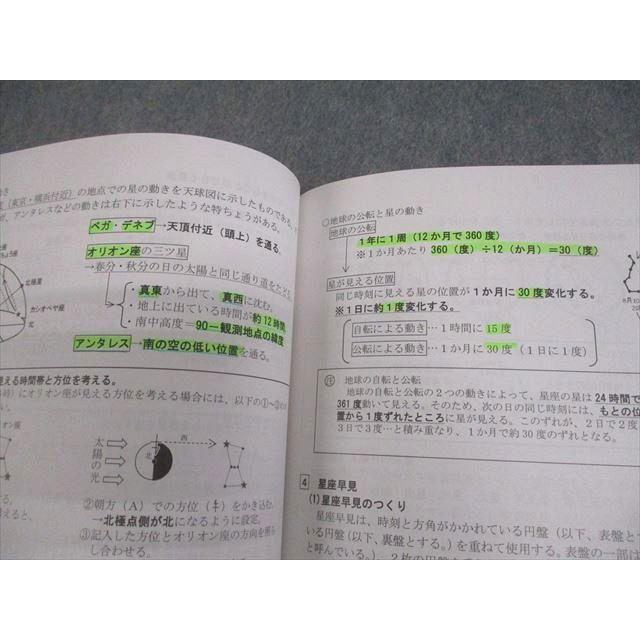 (東京・横浜付近)の地点での星の動きを天球図に示したものである。
アンタレスなどの動きは右下に示したような特ちょうがある。
ベガ・デネブ→天頂付近(頭上)を通る。
オリオン座の三ツ星
→春分・秋分の日の太陽と同じ通り道をたどる。
・真東から出て、真西に沈む。
・地上に出ている時間が約12時間
・南中高度=90-観測地点の緯度
アンタレス→南の空の低い位置を通る。
北極星
カシオペヤ座
北
見える時間帯と方位を考える。
にオリオン座が見える方位を考える場合には、以下の①~
太陽の光
北
西
②朝方(A)での方位(キ)をかき込む。
→北極点側が北になるように設定。
③記入した方位とオリオン座の方向を照らし合わせる。
○地球の公転と星の動き
地球の公転
1年に1周(12か月で360度)
※1か月あたり 360(度)÷12(か月)=30(度)
星が見える位置
同じ時刻に見える星の位置が1か月に30度変化する。
※1日に約1度変化する。
自転による動き…1時間に15度
公転による動き…1か月に30度(1日に1度)
注 地球の自転と公転
地球の自転と公転の2つの動きによって、星座の星は24時間で
361度動いて見える。そのため、次の日の同じ時刻には、もとの位
置から1度ずれたところに星が見える。このずれが、2日で2度
3日で3度…と積み重なり、1か月で約30度のずれとなる。
4 星座早見
(1)星座早見のつくり
星座早見は、時刻と方角がかかれている円盤(以下、表盤と
いる円盤(以下、裏盤とする。)を重ねて使用する。表盤の一部は
と呼んでいる。)、2枚の円盤